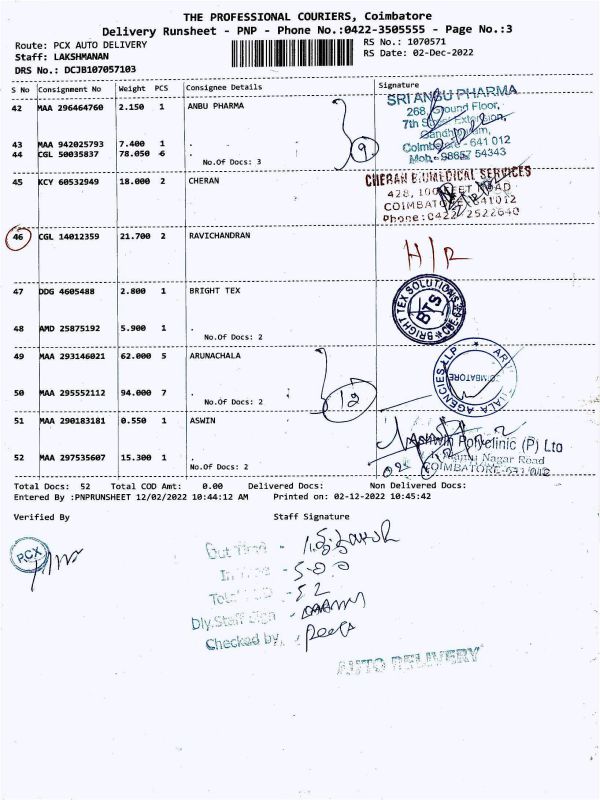 THE PROFESSIONAL COURIERS, Coimbatore
Delivery Runsheet - PNP - Phone No.:0422-3505555 - Page No.:3
Route: PCX AUTO DELIVERY RS No.: 1070571
Staff: LAKSHMANAN RS Date: 02-Dec-2022
DRS No.: DCJB107057103
S No Consignment No Weight PCS Consignee Details Signature
42 MAA 296464760 2.150 1 ANBU PHARMA
SRI ANBU PHARMA
268, Ground Floor,
7th Street Extension,
43 MAA 942025793 7.400 1 .
Coimbatore - 641 012
44 CGL 50035837 78.050 6 .
9
Mob.: 98657 54343
No.Of Docs: 3
45 KCY 60532949 18.000 2 CHERAN
CHERAN BIOMEDICAL SERVICES
428, 100 FEET ROAD
COIMBATORE 641012
Phone:0422 2522640
46 CGL 14012359 21.700 2 RAVICHANDRAN
H/R
47 DDG 4605488 2.800 1 BRIGHT TEX
BRIGHT TEX SOLUTIONS
BTS
48 AMD 25875192 5.900 1 .
No.Of Docs: 2
49 MAA 293146021 62.000 5 ARUNACHALA
AGENCIES LLP
COIMBATORE
50 MAA 295552112 94.000 7 .
No.Of Docs: 2
12
51 MAA 290183181 0.550 1 ASWIN
Aswin Polyclinic (P) Ltd
Nagar Road
COIMBATORE-641 012
52 MAA 297535607 15.300 1 .
No.Of Docs: 2
Total Docs: 52 Total COD Amt: 0.00 Delivered Docs: Non Delivered Docs:
Entered By :PNPRUNSHEET 12/02/2022 10:44:12 AM Printed on: 02-12-2022 10:45:42
Verified By Staff Signature
PCX
Out Time -
In Time - 5-00
Total - 52
Dly.Staff Sign -
Checked by,
AUTO DELIVERY